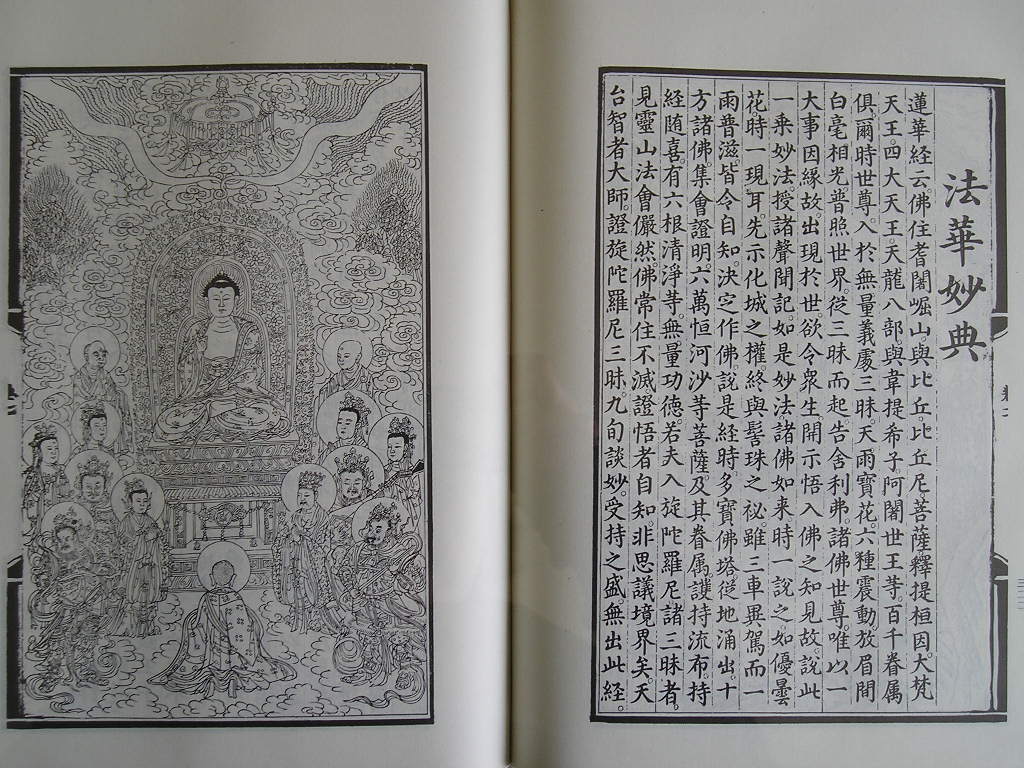 法華妙典
蓮華経云佛住耆闍崛山。與比丘。比丘尼菩薩。釋提桓因。大梵
天王。四大天王。天龍八部。與韋提希子阿闍世王䒭百千眷属
俱。爾時世尊。入於無量義處三昧。天雨寳花。六種震動。放眉間
白毫相光。普照世界。從三昧而起。告舍利弗。諸佛世尊。唯以一
大事因緣故。出現於世。欲令衆生。開示悟入佛之知見故。說此
一乗妙法。授諸聲聞記。如是妙法。諸佛如来。時一說之。如優曇
花。時一現耳。先示化城之權。終與髻珠之祕。雖三車異駕。而一
雨普滋。皆令自知。決定作佛。說是経時。多寳佛塔。從地涌出。十
方諸佛。集會證明。六萬恒河沙䒭菩薩。及其眷属。護持流布。持
経随喜。有六根清淨䒭。無量功德。若夫入旋陀羅尼諸三昧者。
見靈山法會儼然。佛常住不滅。證悟者自知。非思議境界矣。天
台智者大師。證旋陀羅尼三昧。九旬談妙。受持之盛。無出此経。